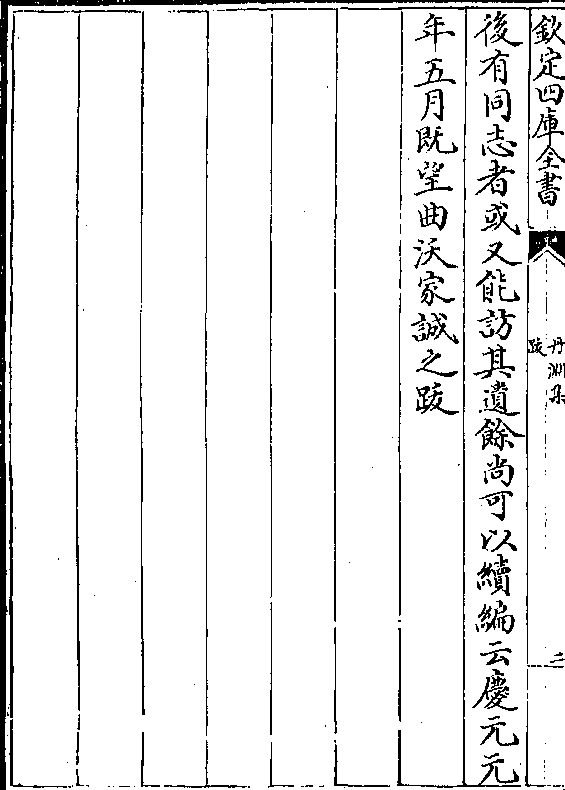 欽定四庫全書
丹淵集
跋
二
後有同志者或又能訪其遺餘尚可以續編云慶元元
年五月既望曲沃家誠之跋